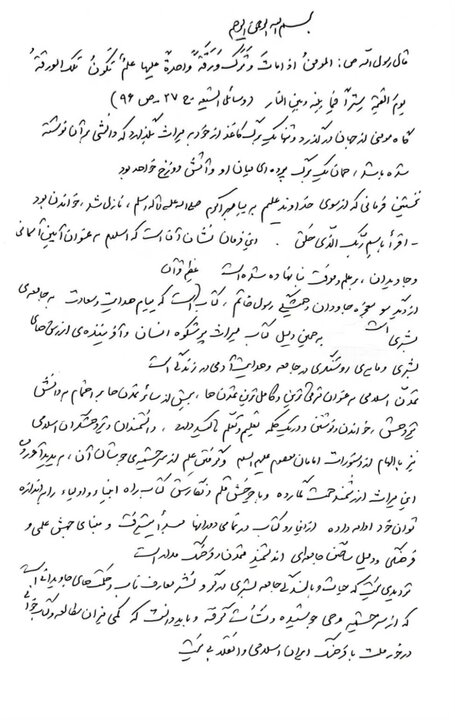 بسم الله الرحمن الرحیم
قال رسول الله ص: المومنُ اذا ماتَ و تَرَکَ وَرَقَةً واحدةً علیها علمٌ تَکونُ تلک الورقةُ
یومَ القیمة سِتراً فیما بینه و بین النار (وسائل الشیعه ج ۲۷ - ص ۹۶)
گاه مومنی از جهان درگذرد و تنها یک برگ کاغذ از خود به میراث بگذارد که دانشی بر آن نوشته
شده باشد، همان یک برگ پرده‌ای میان او و آتش دوزخ خواهد بود
نخستین فرمانی که از سوی خداوند علیم به پیامبر اکرم صلی الله علیه و آله و سلم، نازل شد، خواندن بود
- اقرأ باسم ربک الذی خلق. این فرمان نشان آن است که اسلام به عنوان آئین آسمانی
و جاویدان، بر علم و معرفت بنا نهاده شده است عظیم قرآن
از دیگر سو معجزه جاودان و همیشگی رسول خاتم، کتاب است که پیام هدایت و سعادت به جامعه‌ی
بشری است به همین دلیل کتاب میراث پرشکوه انسان و آفریننده‌ی ارزش‌های
بشری و مایه‌ی روشنگری در جامعه و هدایت آدمی در زندگی است
تمدن اسلامی به عنوان مترقی‌ترین و کامل‌ترین تمدن‌ها، بیش از سائر تمدن‌ها بر اهتمام به دانش
پژوهش، خواندن و نوشتن و در یک کلمه تعلیم و تعلم تاکید دارد، دانشمندان و پژوهشگران اسلامی
نیز با الهام از دستورات امامان معصوم علیه السلام و گرفتن علم از سرچشمه‌ی جوشان آن، به پدید آوردن
این میراث ارزشمند همت گمارده و با چرخش قلم و نگارش کتاب راه انبیاء و اولیاء را به اندازه
توان خود ادامه داده از این رو کتاب در تمامی دورانها مسیر پیشرفت و مبنای جنبش علمی و
فرهنگی و دلیل ساختن جامعه‌ای اندیشمند متمدن و با فرهنگ بوده است
تردیدی نیست که حیات و بالندگی جامعه بشری در گرو نشر معارف ناب و حکمت‌های جاویدانه است
که از سرچشمه وحی جوشیده و نشأت گرفته و باید دانست که کمی میزان مطالعه و کتابخوانی
در خور ملت با فرهنگ ایران اسلامی و انقلابی نیست